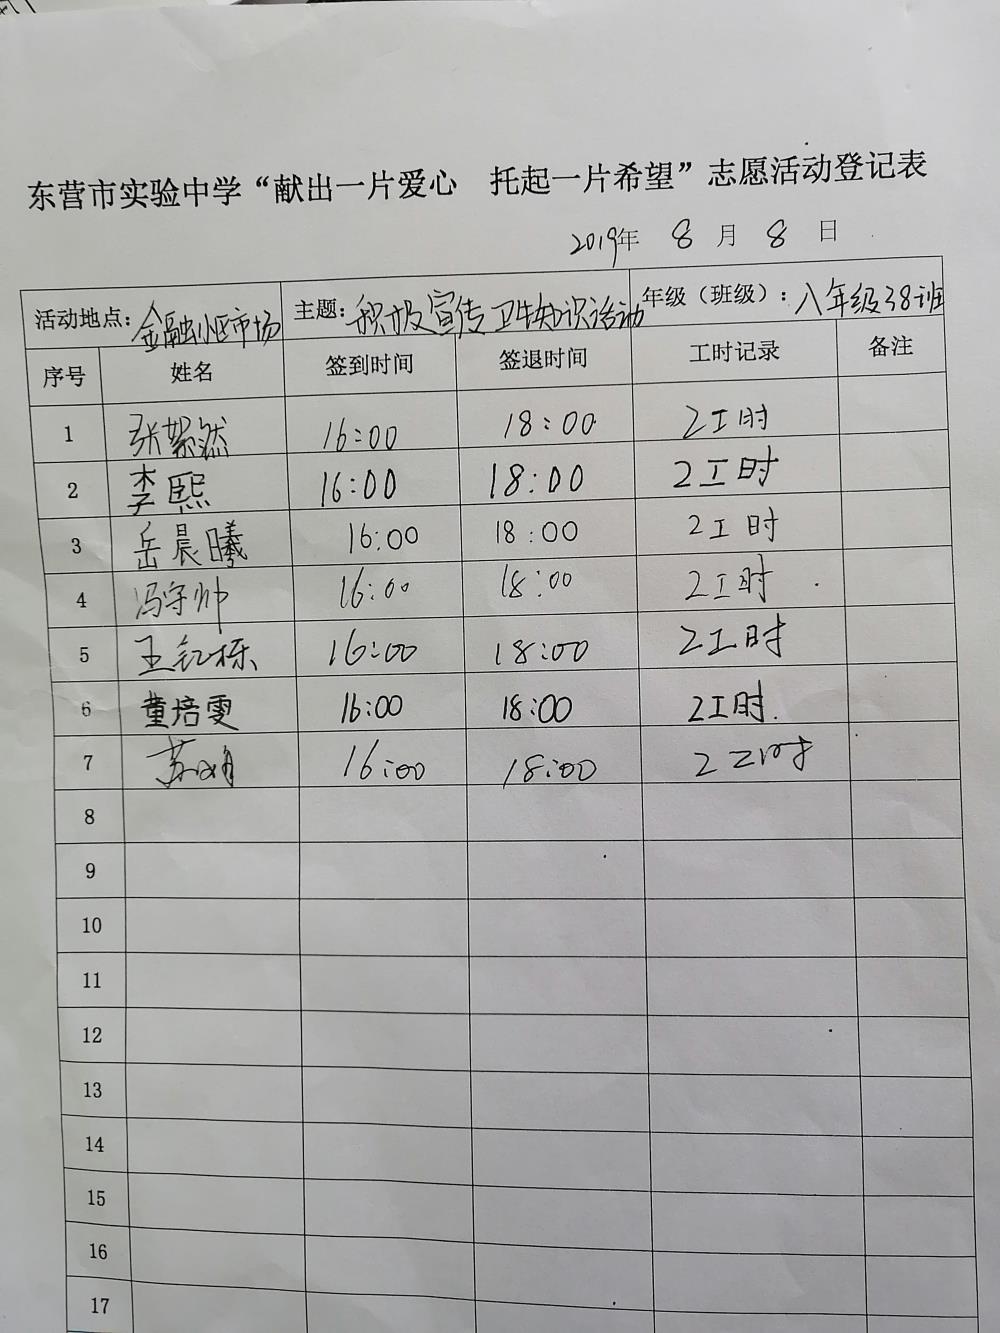 东营市实验中学“献出一片爱心 托起一片希望”志愿活动登记表
2019年 8 月 8 日
活动地点：金融小区市场 主题：积极宣传卫生知识活动 年级（班级）：八年级38班
序号 姓名 签到时间 签退时间 工时记录 备注
1 张絮然 16:00 18:00 2工时
2 李熙 16:00 18:00 2工时
3 岳晨曦 16:00 18:00 2工时
4 冯守帅 16:00 18:00 2工时
5 王钇栎 16:00 18:00 2工时
6 董培雯 16:00 18:00 2工时
7 16:00 18:00 2工时
8
9
10
11
12
13
14
15
16
17